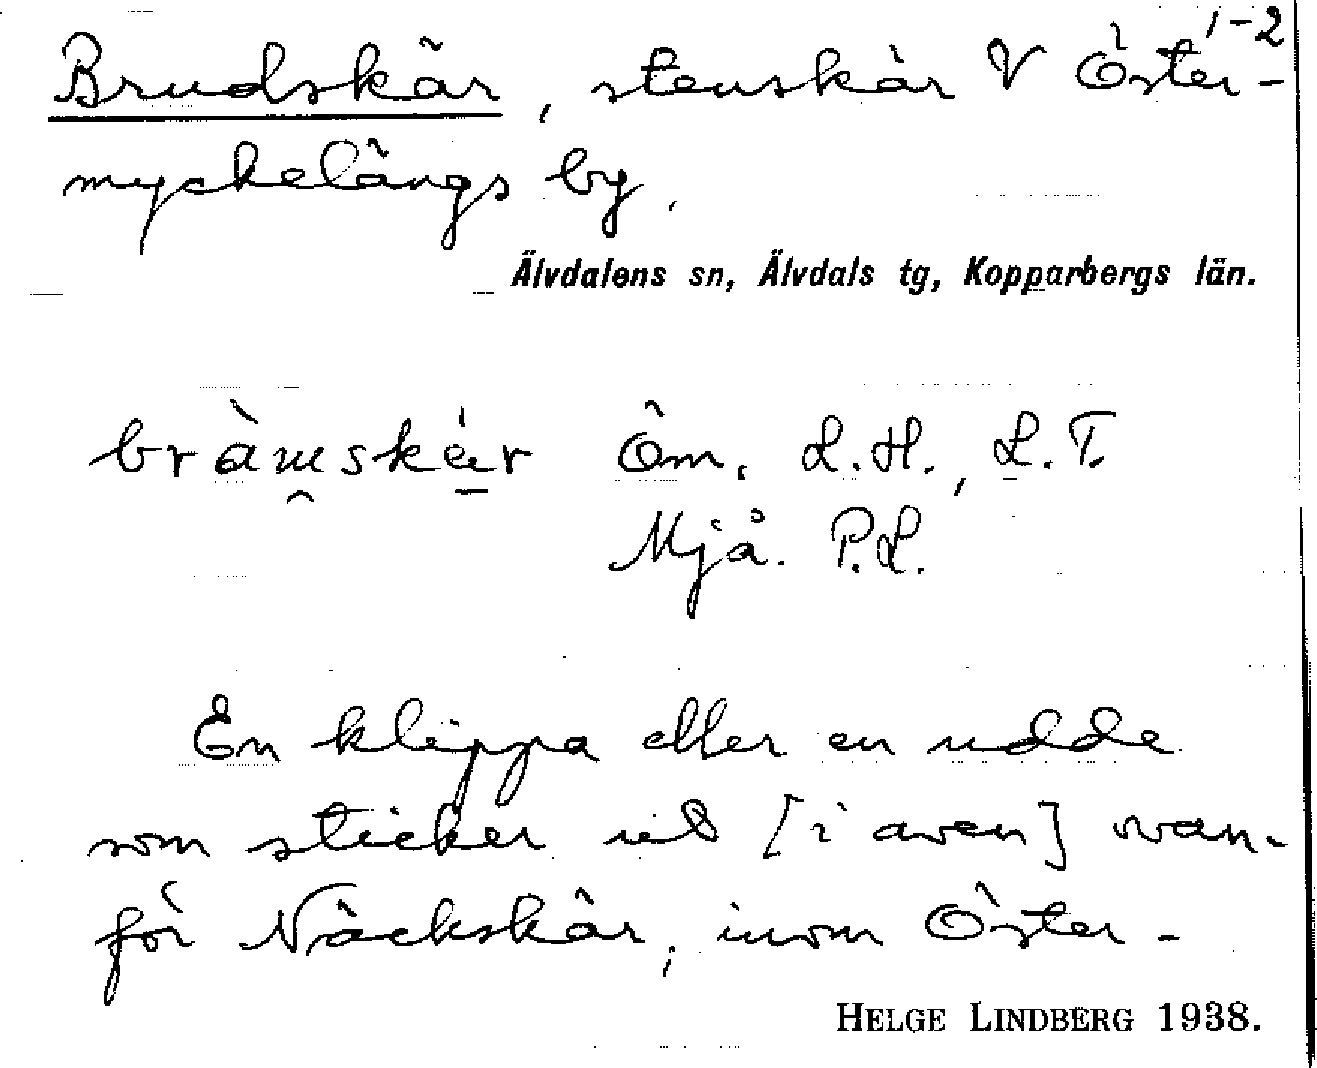 1-2
Brudskär, stenskär V Öster-
myckelängs by.
Älvdalens sn, Älvdals tg, Kopparbergs län.
Öm. L.H., L.T.
Mjå. P.L.
En klippa eller en udde
som sticker ut [i aven] ovan-
för Näckskär, inom Öster-
HELGE LINDBERG 1938.